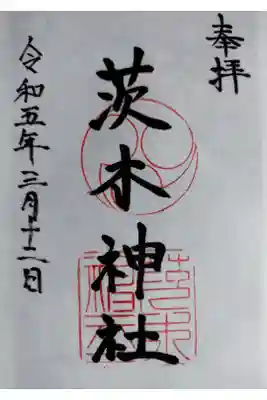 奉拝
茨木神社
令和五年三月十二日